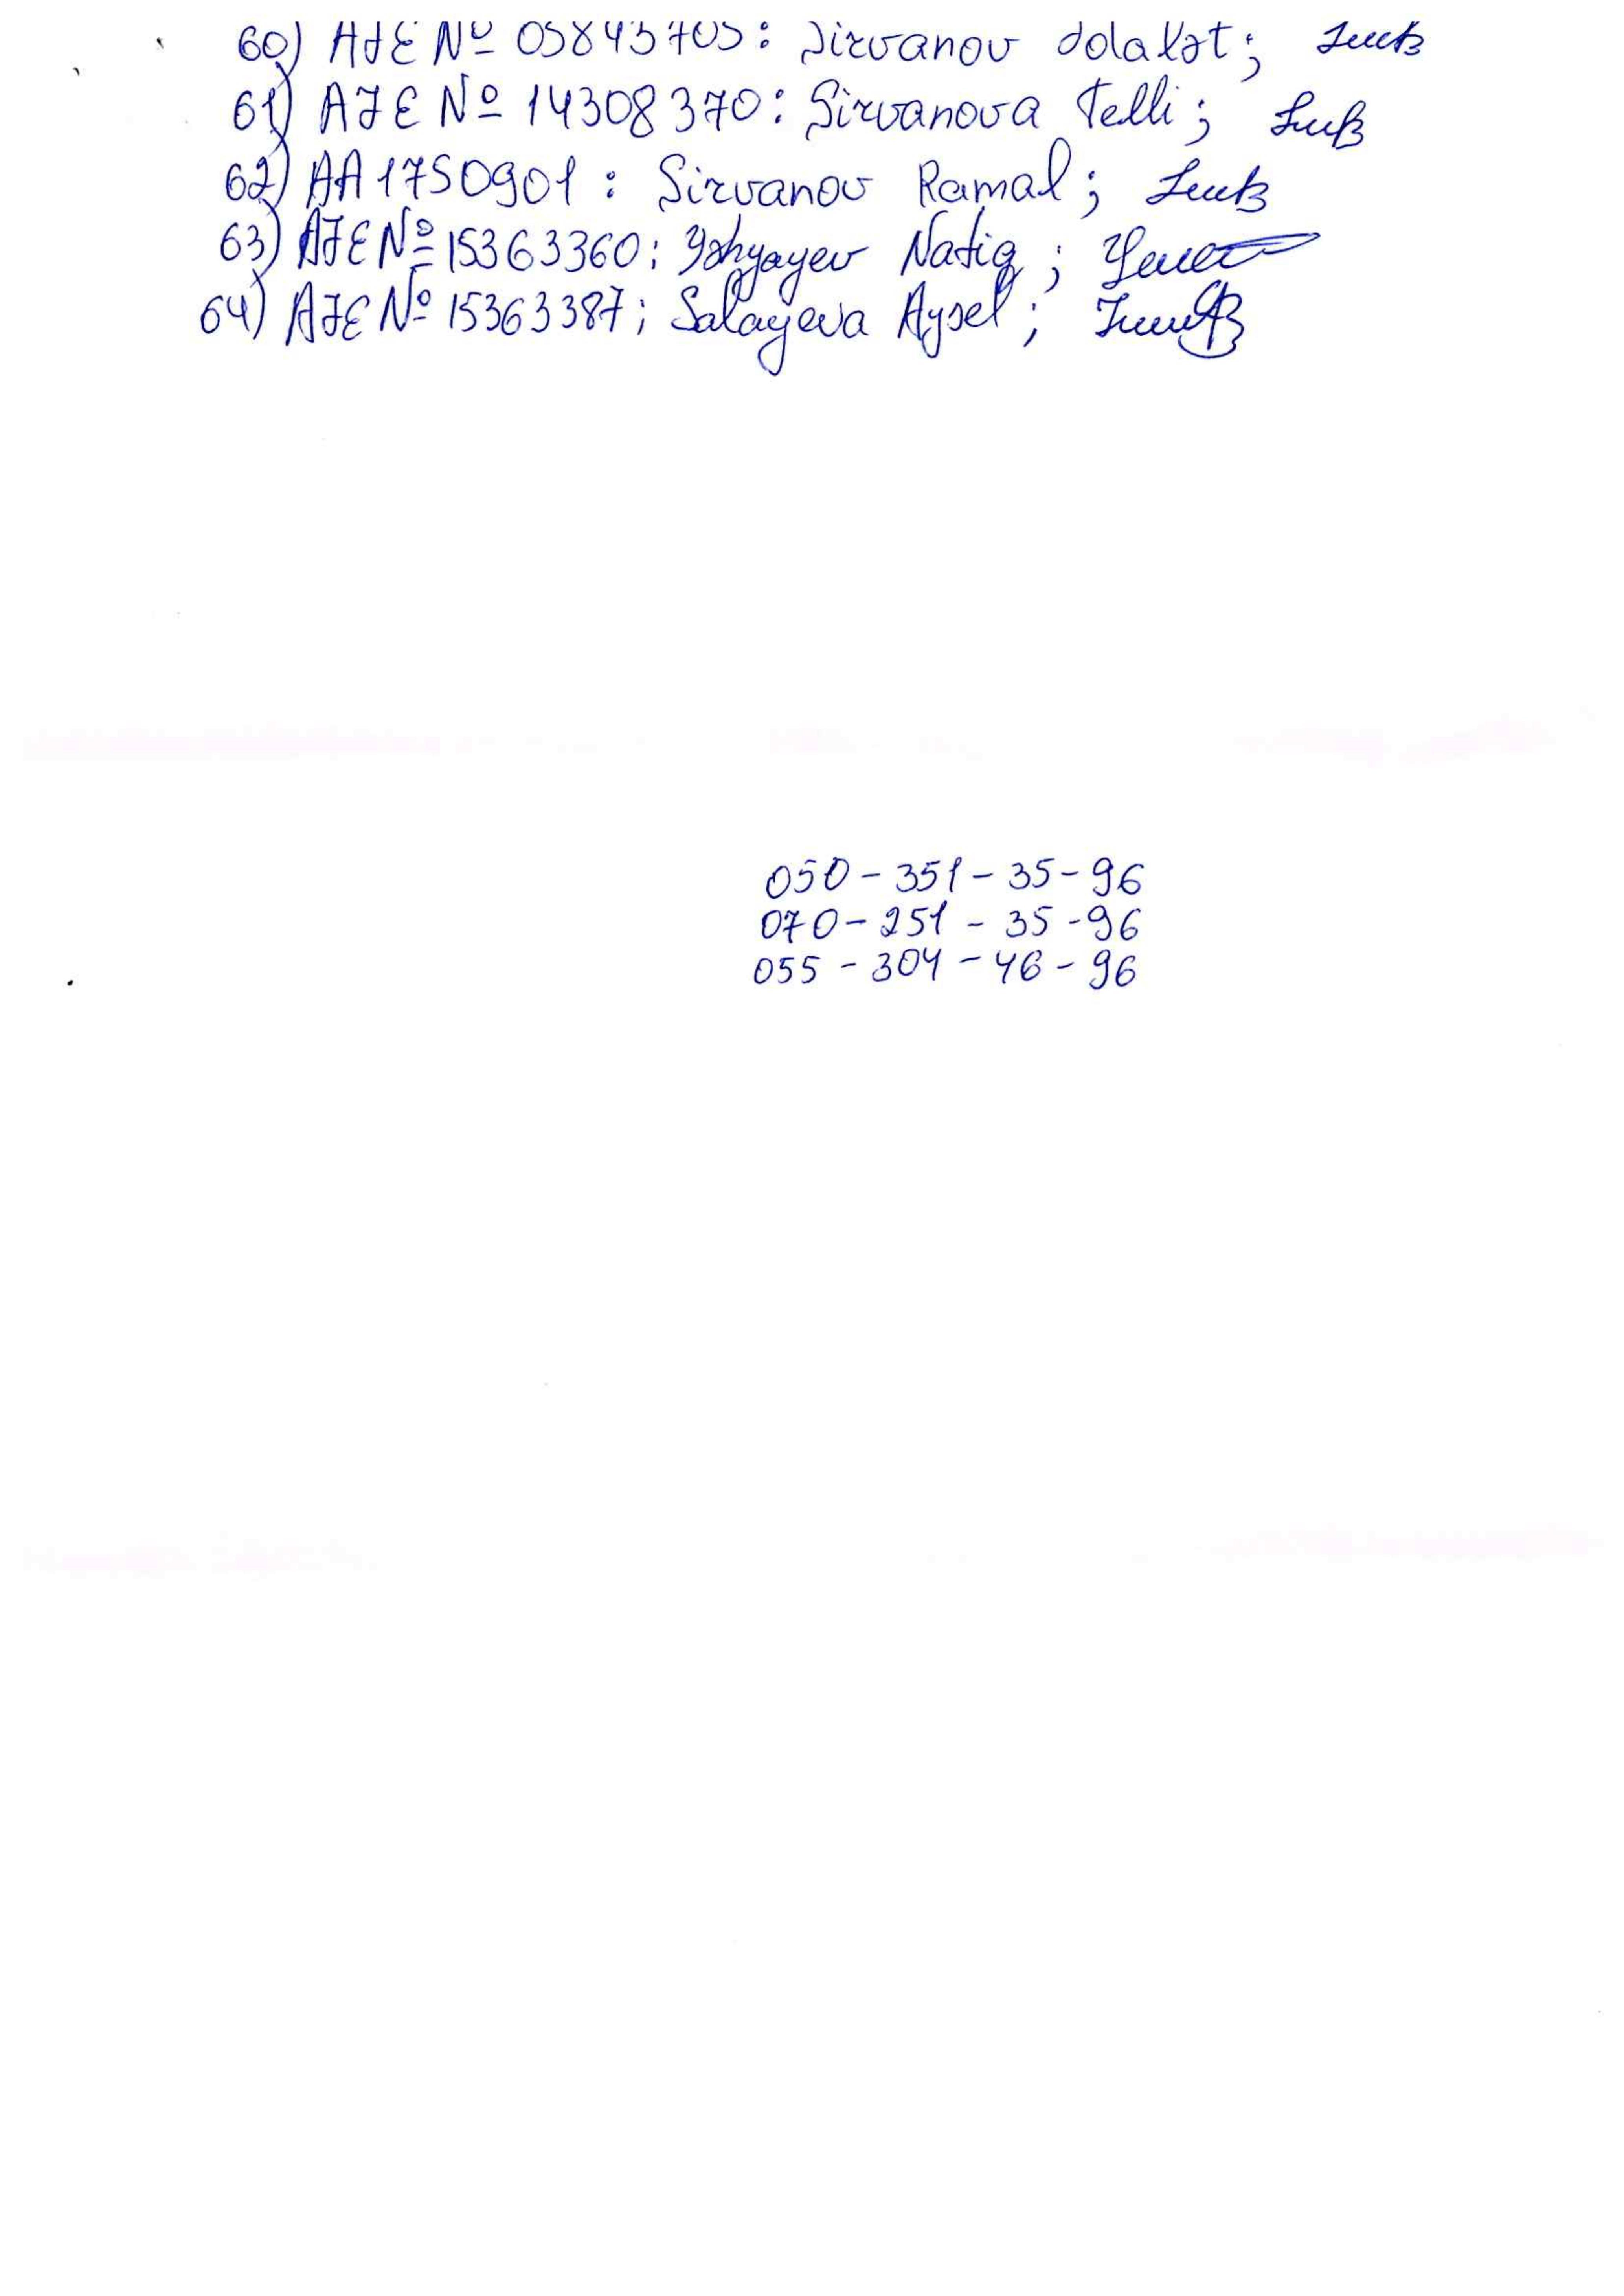 60) AJE № 05843705: Sirvanov dolalət;
61) AJE № 14308370: Sirvanova Telli;
62) AA1750901: Sirvanov Ramal;
63) AJE № 15363360; Yəhyayev Natiq;
64) AJE № 15363387; Salayeva Aysel;
050-351-35-96
070-251-35-96
055-304-46-96